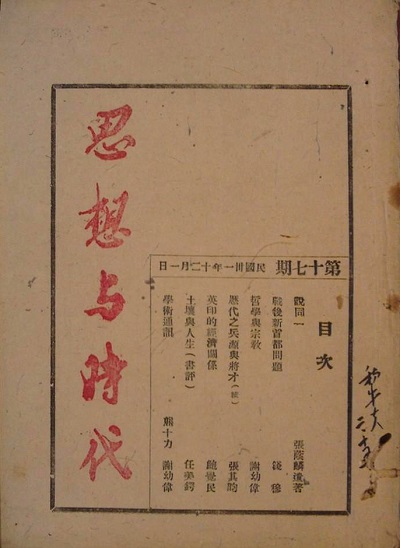 思想与時代
第十七期 民國卅一年十二月一日
目次
說同一 張蔭麟遺著
戰後新首都問題 錢穆
哲學與宗教 謝幼偉
歷代之兵源與將才(續) 張其昀
英印的經濟關係 鮑覺民
土壤與人生(書評) 任美鍔
學術通訊 熊十力 謝幼偉